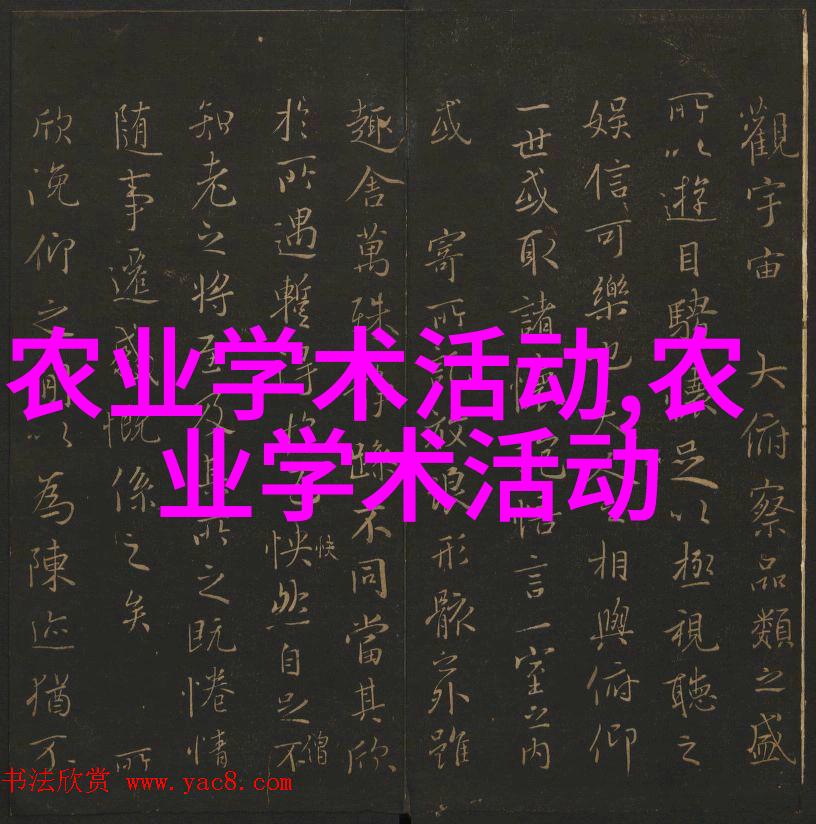 農业学术活动,农
业学术活动
觀宇宙 大俯察品類之盛
所以遊目騁懷足以極視聽之
娛信可樂也夫相與俯仰
一世或取諸懷悟言一室之內
或 寄所放浪形骸之外雖
趣舍萬殊靜躁不同當其欣
於所遇暫得於怏然自足不
快
僧
知老之將至及其所之既惓情
隨事遷感慨係之矣 所
欣俛仰之間以為陳迹猶不
书法欣赏 www.yac8.com